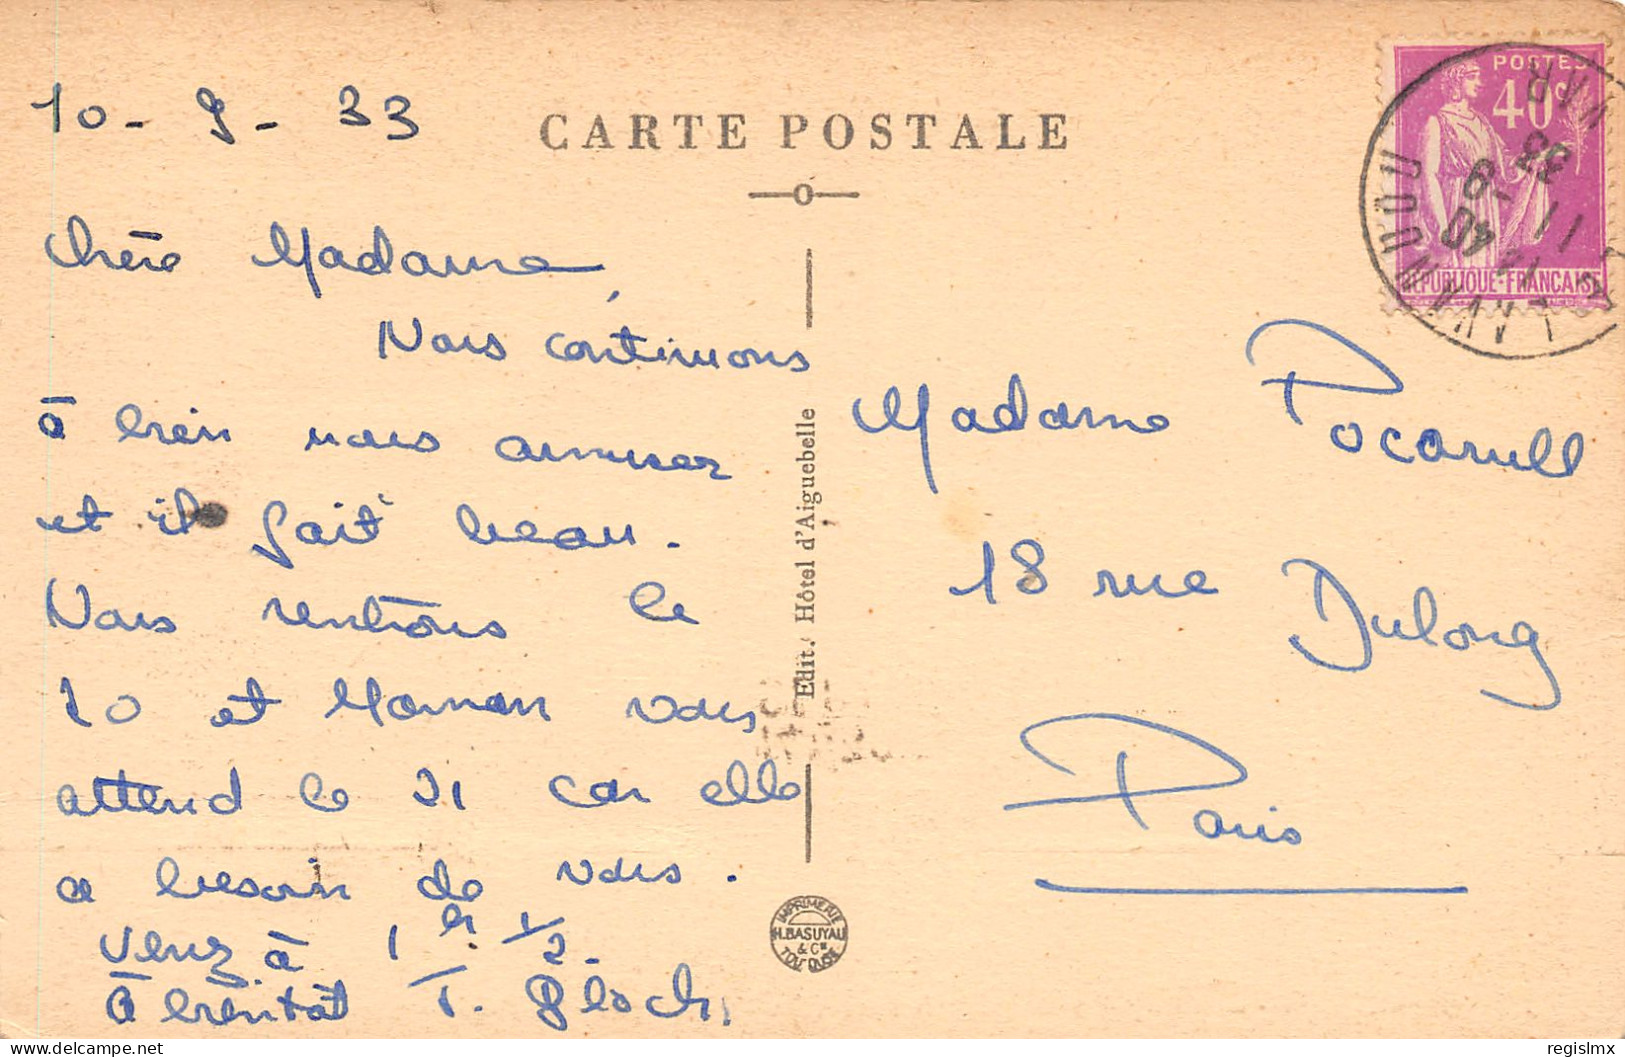 10 - 9 - 33
CARTE POSTALE
Chère Madame,
Nous continuons
à bien nous amuser
et il fait beau.
Nous rentrons le
20 et Maman vous
attend le 21 car elle
a besoin de vous.
venez à 1 h 1/2.
à bientôt T. Bloch.
Edit.: Hôtel d'Aiguebelle
IMPRIMERIE
H. BASUYAU
& Cie
TOULOUSE
POSTES
40c
REPUBLIQUE-FRANÇAISE
LE LAVANDOU
VAR
40
11 -9
33
Madame
18 rue Dulong
Paris
delcampe.net
regislmx